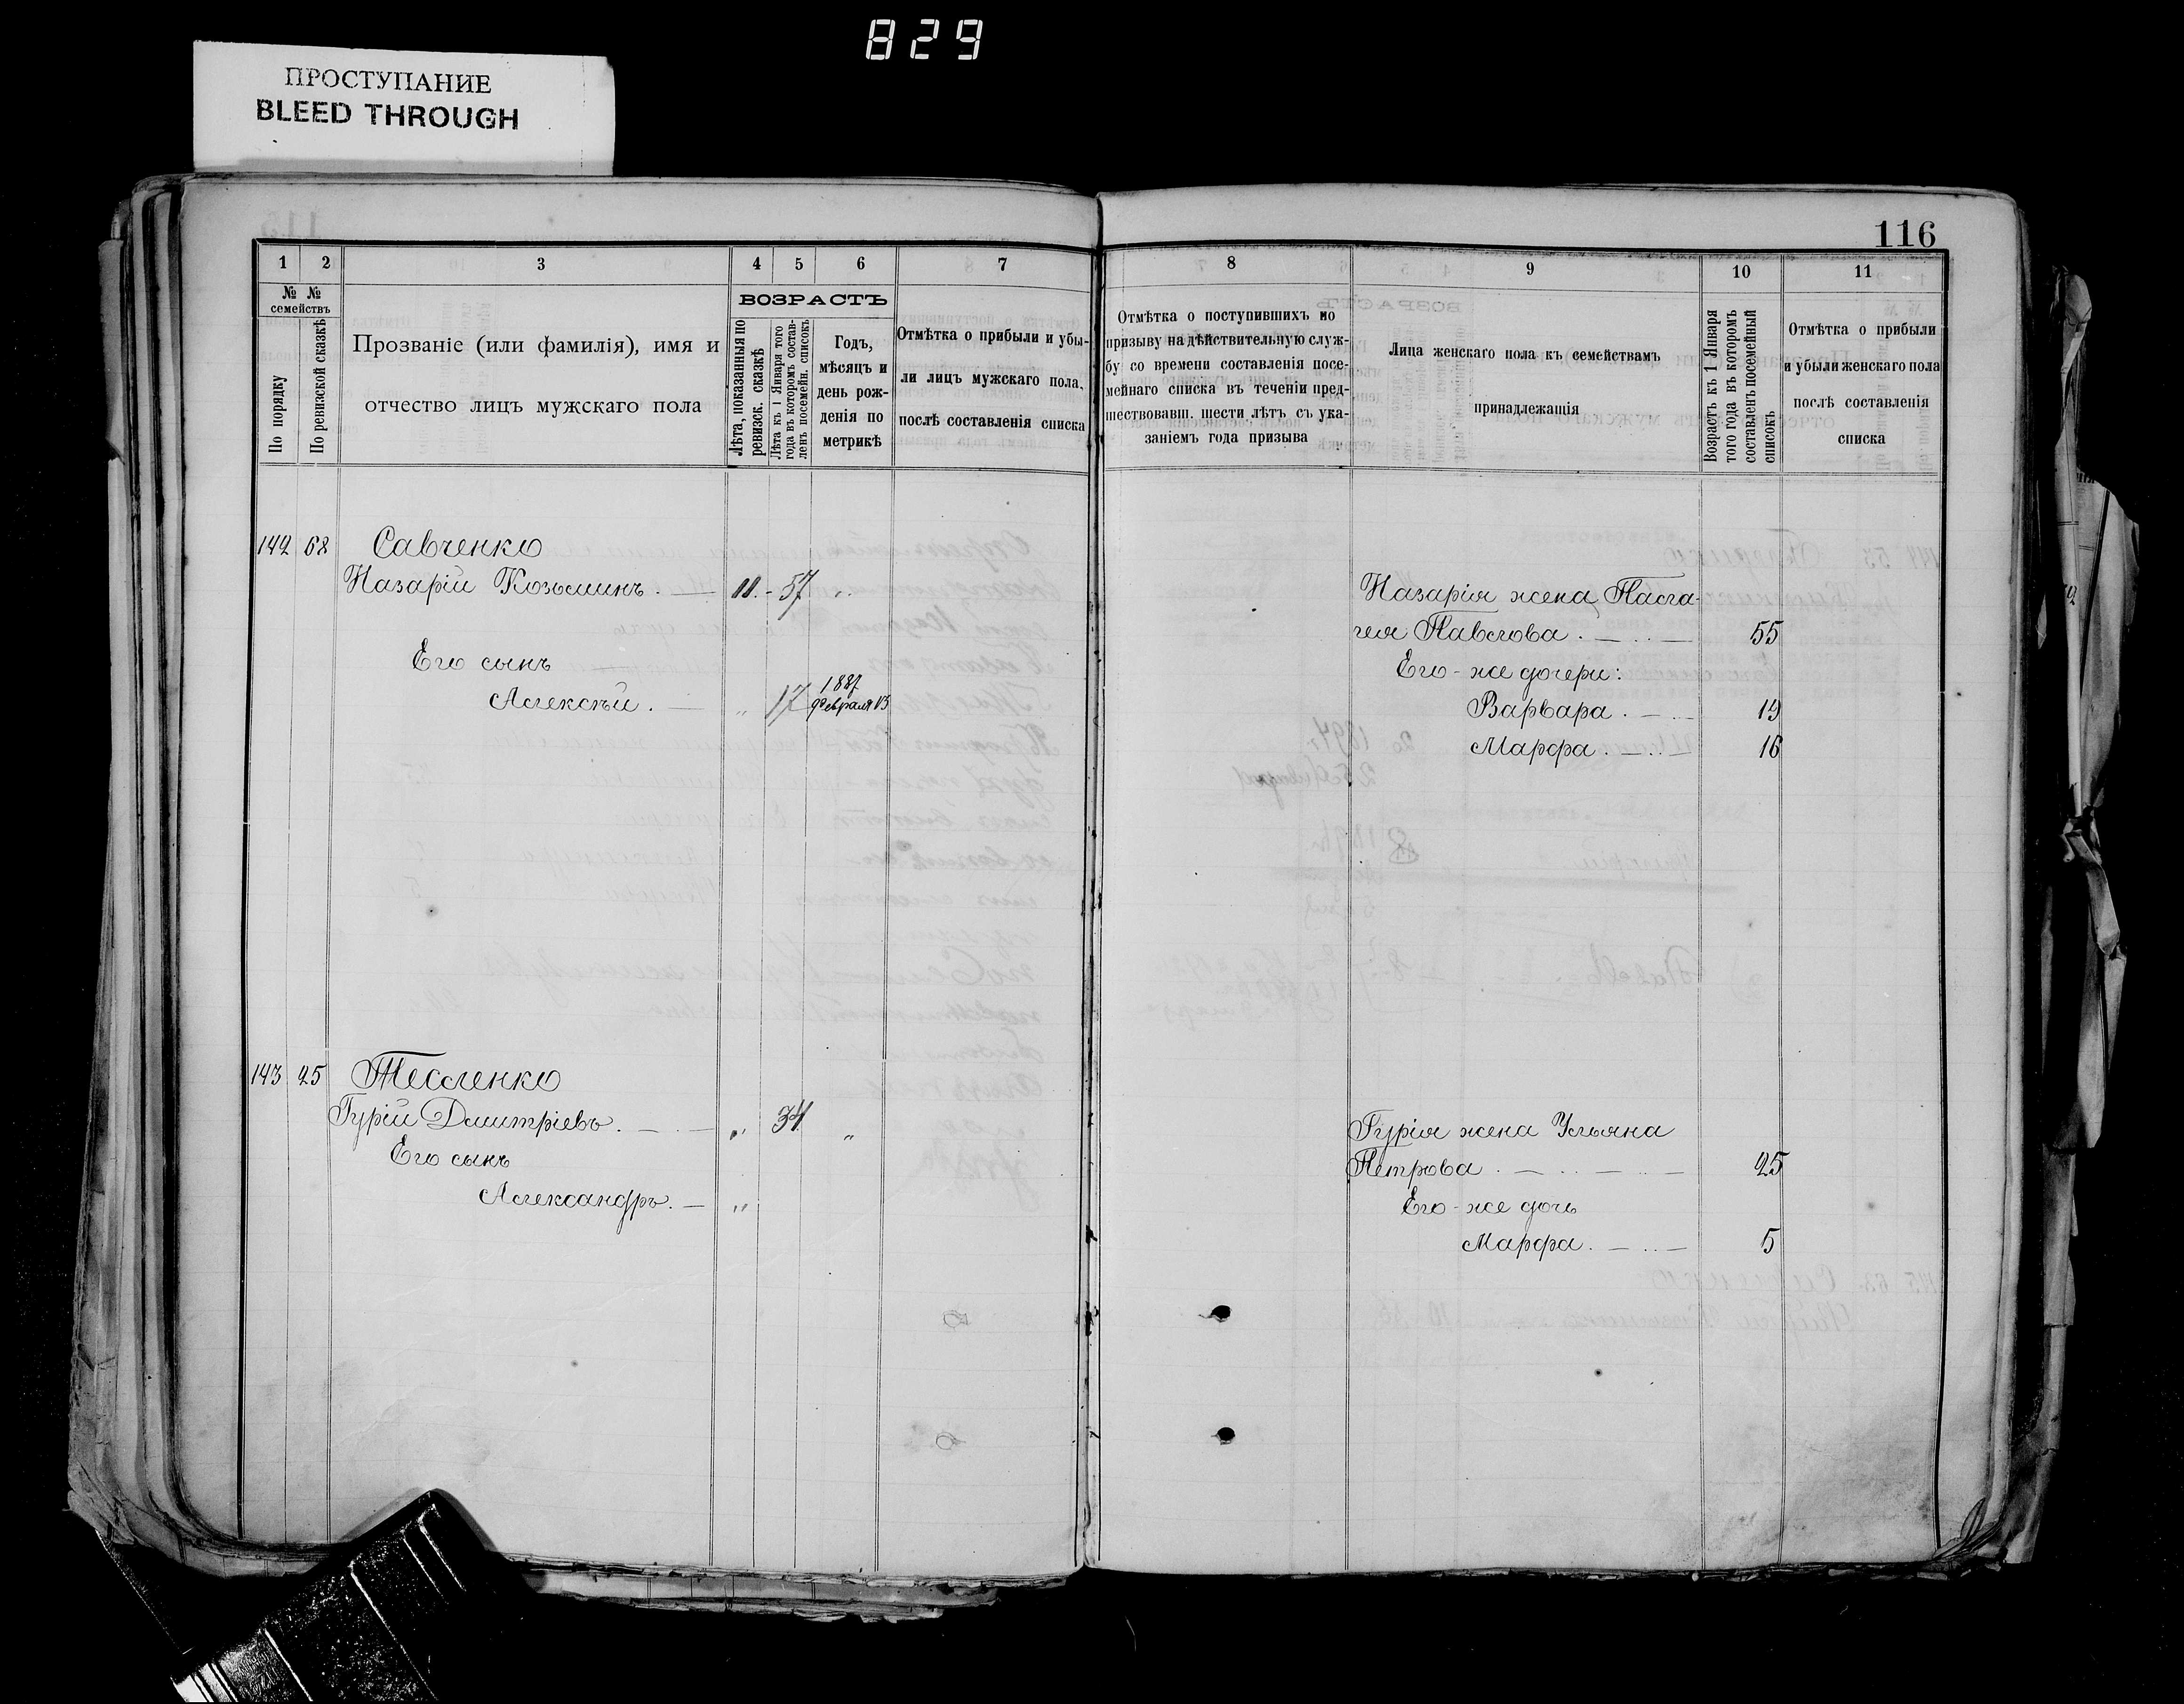 829
ПРОСТУПАНИЕ
BLEED THROUGH
116
1 2 3 4 5 6 7 8 9 10 11
№ №
семействъ
По порядку
По ревизской сказкѣ
Прозваніе (или фамилія), имя и
отчество лицъ мужскаго пола
ВОЗРАСТЪ
Лѣта, показанныя по
ревизск. сказкѣ
Лѣта къ 1 Января того
года въ которомъ состав-
ленъ посемейн. списокъ
Годъ,
мѣсяцъ и
день рож-
денія по
метрикѣ
Отмѣтка о прибыли и убы-
ли лицъ мужскаго пола,
послѣ составленія списка
Отмѣтка о поступившихъ по
призыву на дѣйствительную служ-
бу со времени составленія посе-
мейнаго списка въ теченіи пред-
шествовавш. шести лѣтъ съ ука-
заніемъ года призыва
Лица женскаго пола къ семействамъ
принадлежащія
Возрастъ къ 1 Января
того года въ которомъ
составленъ посемейный
списокъ
Отмѣтка о прибыли
и убыли женскаго пола
послѣ составленія
списка
142 68 Савченко
Назарій Козьминъ. — 11. - 57 „
Назарія жена Пела-
гея Павлова. — 55
Его сынъ
Его-же дочери:
Алексѣй. — „ 17 1887 Февраля 13
Варвара. — 19
Марфа. — 16
143 25 Тесленко
Гурій Дмитріевъ. — „ 34 „
Гурія жена Ульяна
Его сынъ
Петрова. — 25
Александръ. — „
Его-же дочь
Марфа. — 5